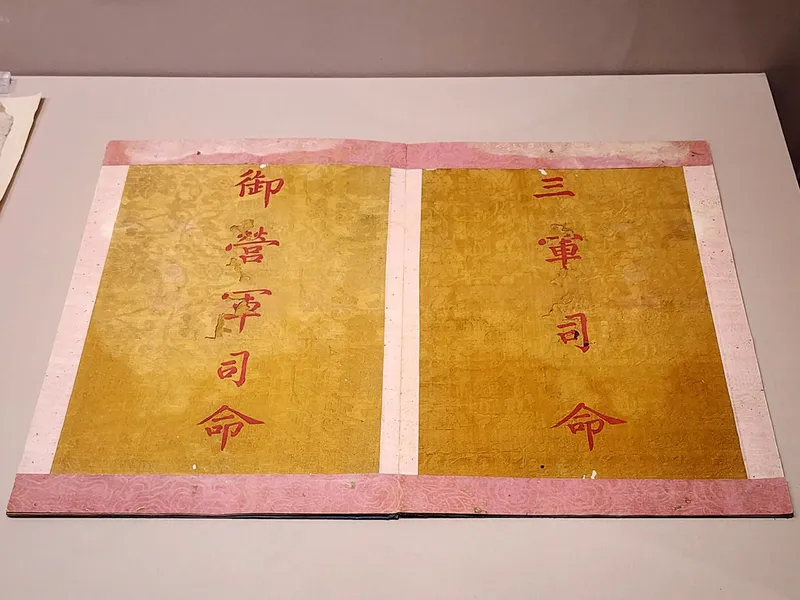 三軍司命
御營軍司命